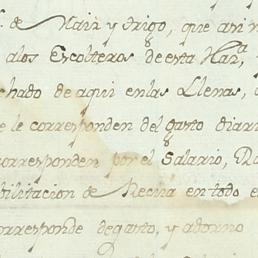 de Maiz y trigo, que asi
alos Escolteros de esta Haz.ª, y
chado de aqui enlas Llenas,
e le corresponden del gasto diari
corresponden por el Salario, Ra
bilitacion de Recua en todo e
corresponde degasto, y adorno